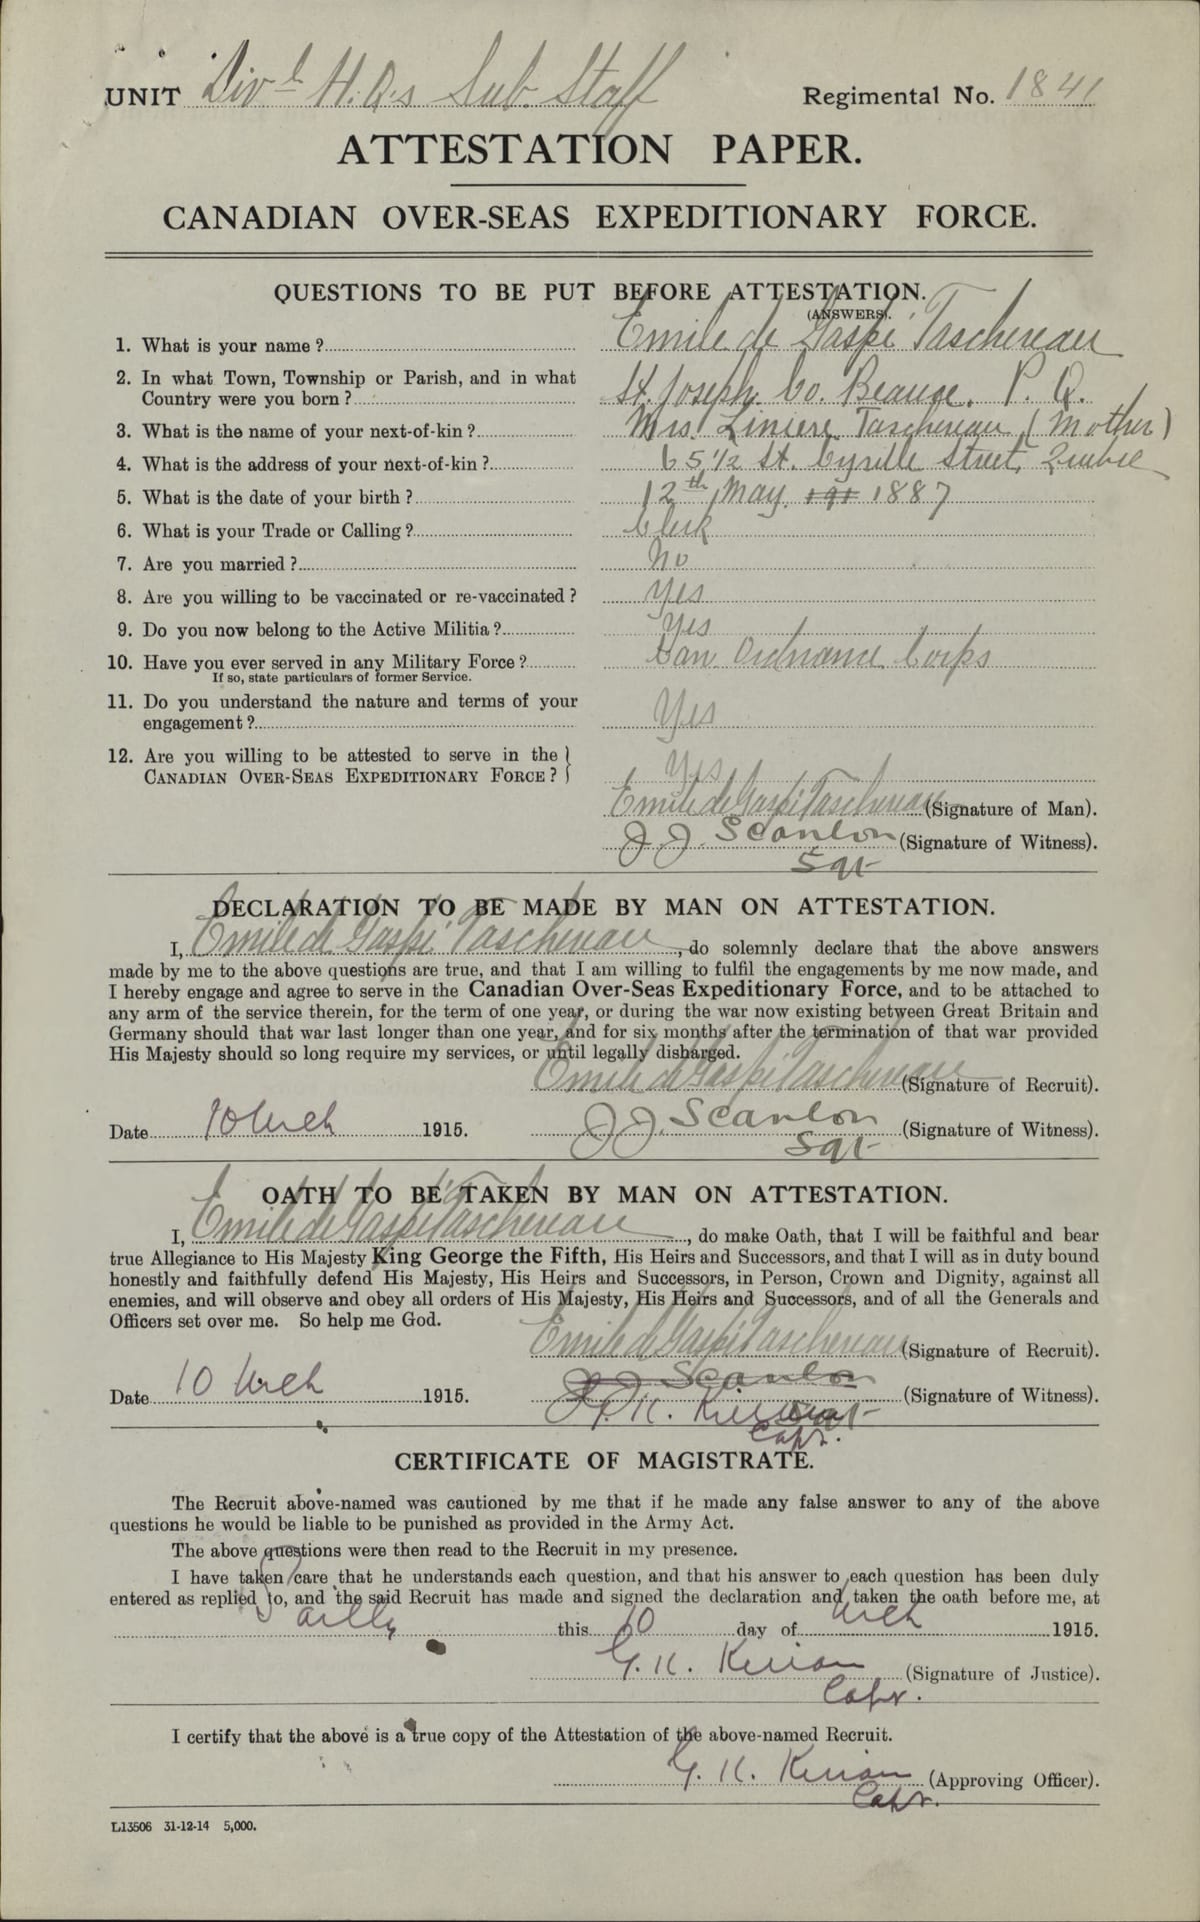 UNIT Divl H.Qs Sub. Staff Regimental No. 1841
ATTESTATION PAPER.
CANADIAN OVER-SEAS EXPEDITIONARY FORCE.
QUESTIONS TO BE PUT BEFORE ATTESTATION.
(ANSWERS).
1. What is your name? Emile de Gaspé Taschereau
2. In what Town, Township or Parish, and in what
Country were you born? St. Joseph. Co. Beauce. P. Q.
3. What is the name of your next-of-kin? Mrs. Liniere Taschereau (Mother)
4. What is the address of your next-of-kin? 65 1/2 St. Cyrille Street, Quebec
5. What is the date of your birth? 12th May 191 1887
6. What is your Trade or Calling? Clerk
7. Are you married? No
8. Are you willing to be vaccinated or re-vaccinated? Yes
9. Do you now belong to the Active Militia? Yes
10. Have you ever served in any Military Force? Can Ordnance Corps
If so, state particulars of former Service.
11. Do you understand the nature and terms of your
engagement? Yes
12. Are you willing to be attested to serve in the
CANADIAN OVER-SEAS EXPEDITIONARY FORCE? Yes
Emile de Gaspé Taschereau (Signature of Man).
J J. Scanlon (Signature of Witness).
Sgt
DECLARATION TO BE MADE BY MAN ON ATTESTATION.
I, Emile de Gaspé Taschereau, do solemnly declare that the above answers
made by me to the above questions are true, and that I am willing to fulfil the engagements by me now made, and
I hereby engage and agree to serve in the Canadian Over-Seas Expeditionary Force, and to be attached to
any arm of the service therein, for the term of one year, or during the war now existing between Great Britain and
Germany should that war last longer than one year, and for six months after the termination of that war provided
His Majesty should so long require my services, or until legally disharged.
Emile de Gaspé Taschereau (Signature of Recruit).
Date 10 Mrch 1915. J J. Scanlon (Signature of Witness).
Sgt
OATH TO BE TAKEN BY MAN ON ATTESTATION.
I, Emile de Gaspé Taschereau, do make Oath, that I will be faithful and bear
true Allegiance to His Majesty King George the Fifth, His Heirs and Successors, and that I will as in duty bound
honestly and faithfully defend His Majesty, His Heirs and Successors, in Person, Crown and Dignity, against all
enemies, and will observe and obey all orders of His Majesty, His Heirs and Successors, and of all the Generals and
Officers set over me. So help me God.
Emile de Gaspé Taschereau (Signature of Recruit).
J J. Scanlon
Date 10 Mrch 1915. G. K. Kirwan Sgt (Signature of Witness).
Capt.
CERTIFICATE OF MAGISTRATE.
The Recruit above-named was cautioned by me that if he made any false answer to any of the above
questions he would be liable to be punished as provided in the Army Act.
The above questions were then read to the Recruit in my presence.
I have taken care that he understands each question, and that his answer to each question has been duly
entered as replied to, and the said Recruit has made and signed the declaration and taken the oath before me, at
this 10 day of Mrch 1915.
G. K. Kirwan (Signature of Justice).
Capt.
I certify that the above is a true copy of the Attestation of the above-named Recruit.
G. K. Kirwan (Approving Officer).
Capt.
L13506 31-12-14 5,000.